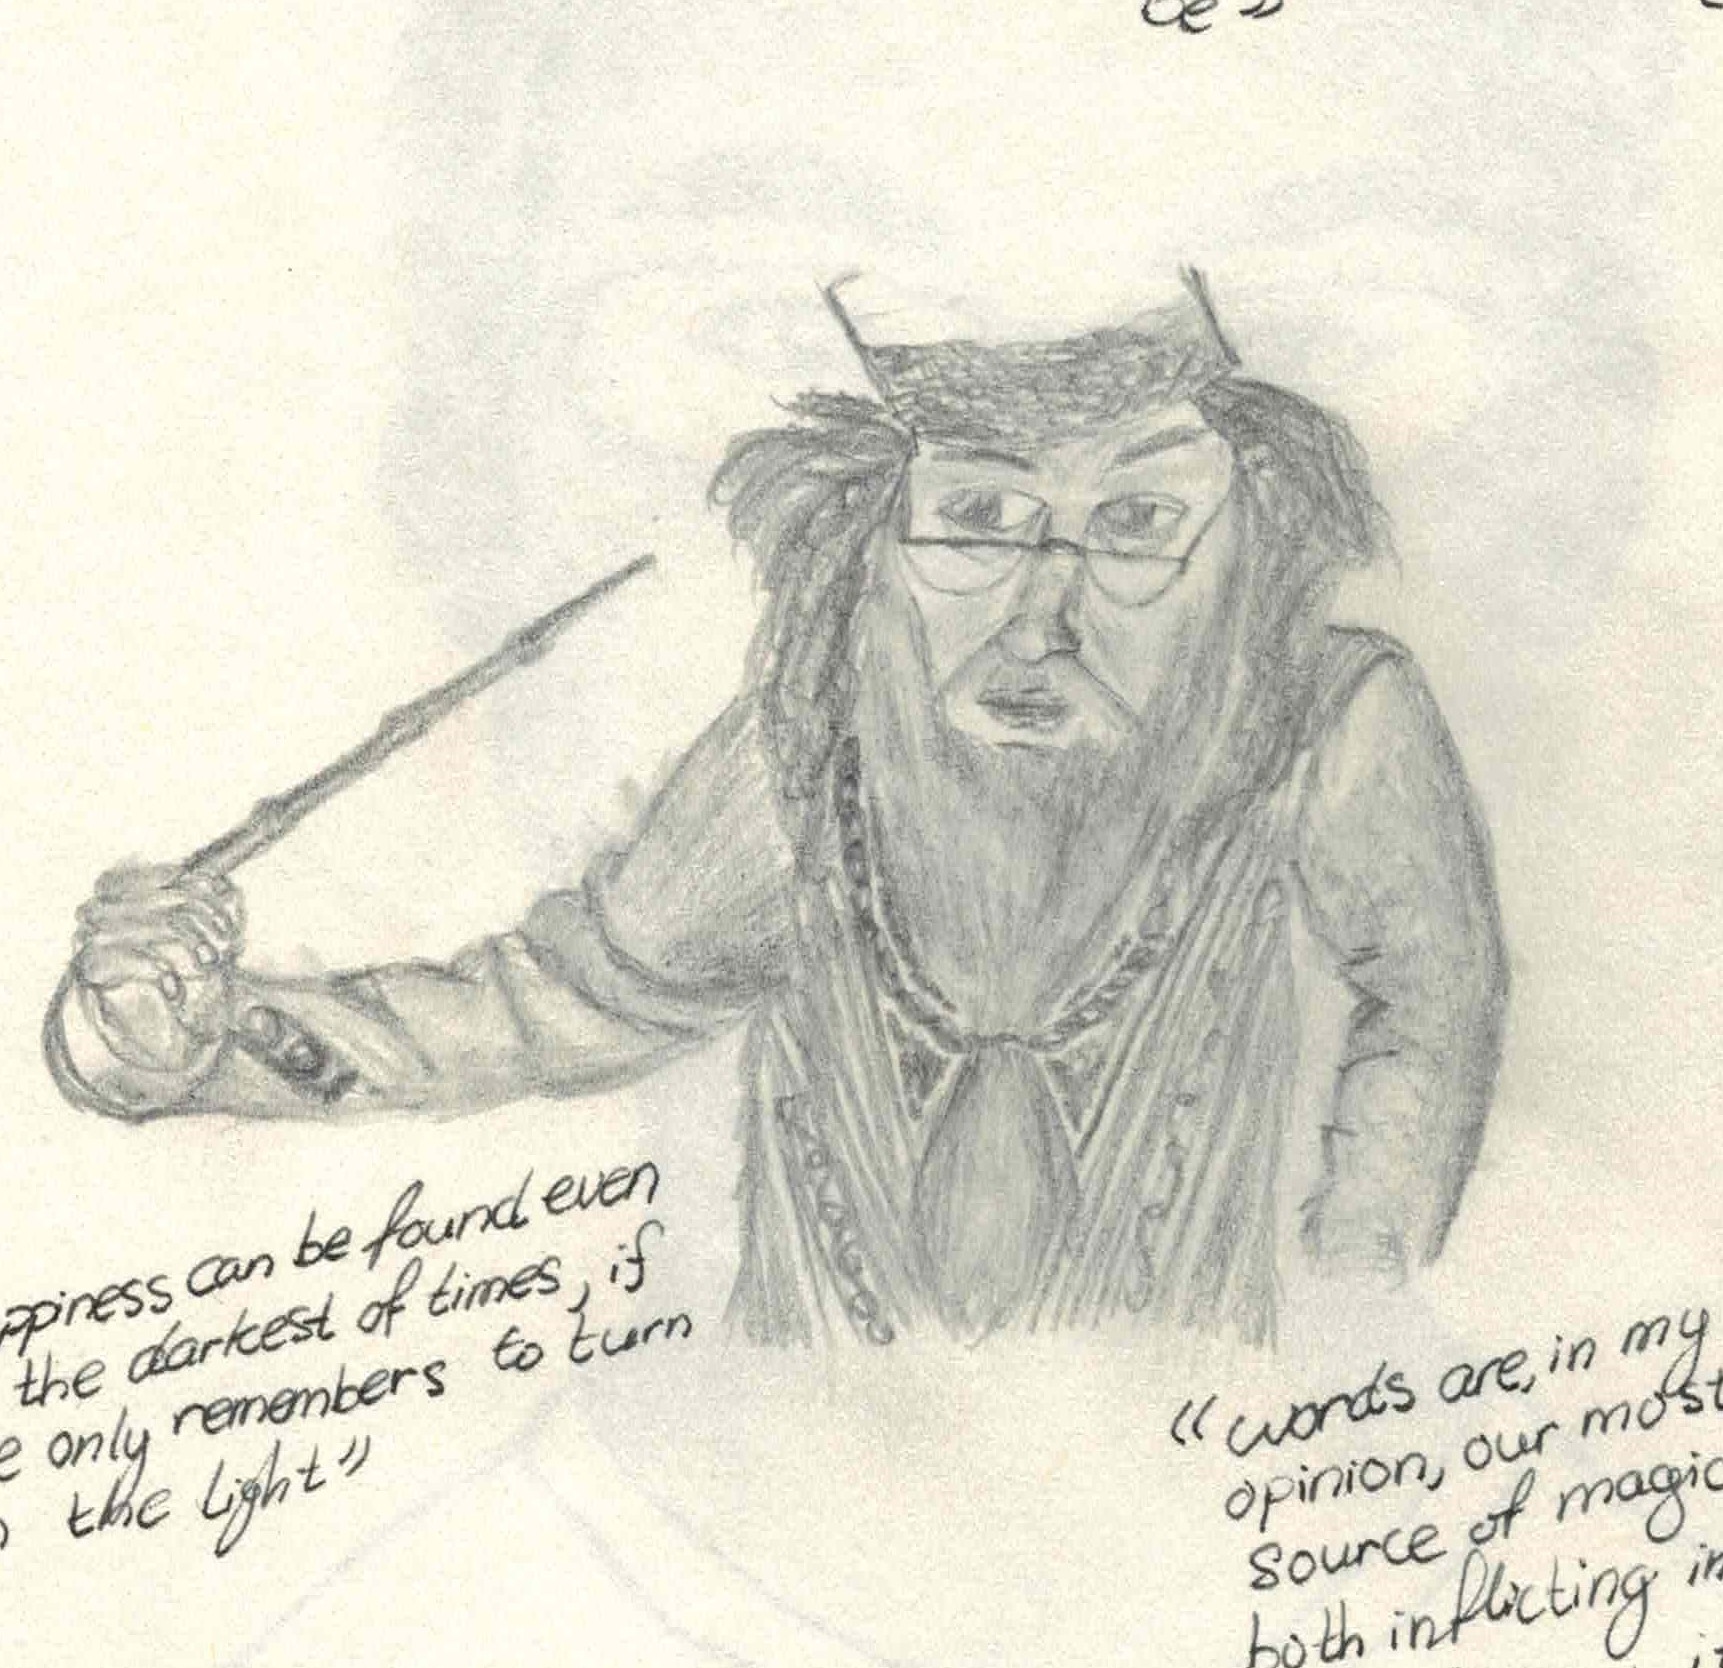 be"
ppiness can be found even
the darkest of times, if
e only remembers to turn
the light"
"words are, in my
opinion, our most
source of magic
both inflicting in